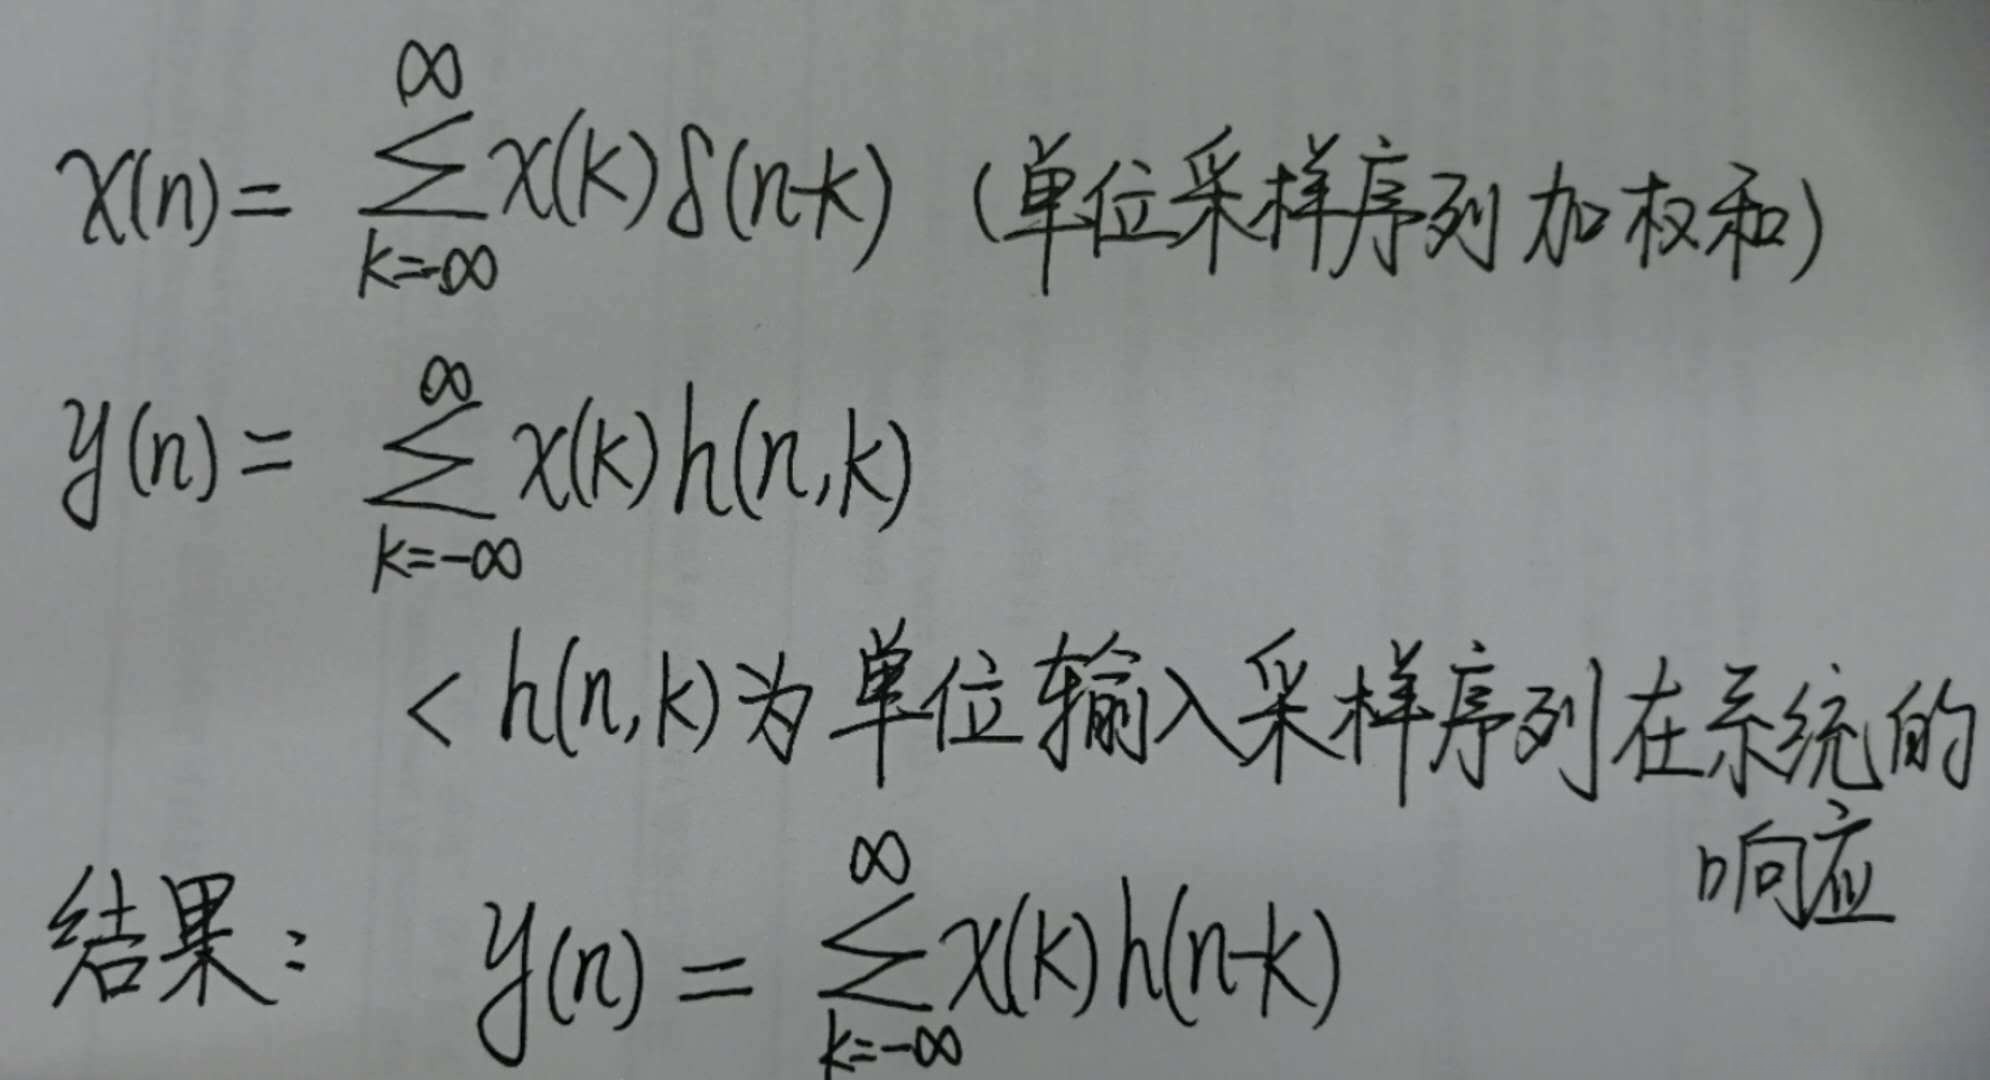 x(n) = ∑_{k=-∞}^{∞} x(k) δ(n-k) (单位采样序列加权和)
y(n) = ∑_{k=-∞}^{∞} x(k) h(n,k)
< h(n,k)为单位输入采样序列在系统的
响应
结果: y(n) = ∑_{k=-∞}^{∞} x(k) h(n-k)